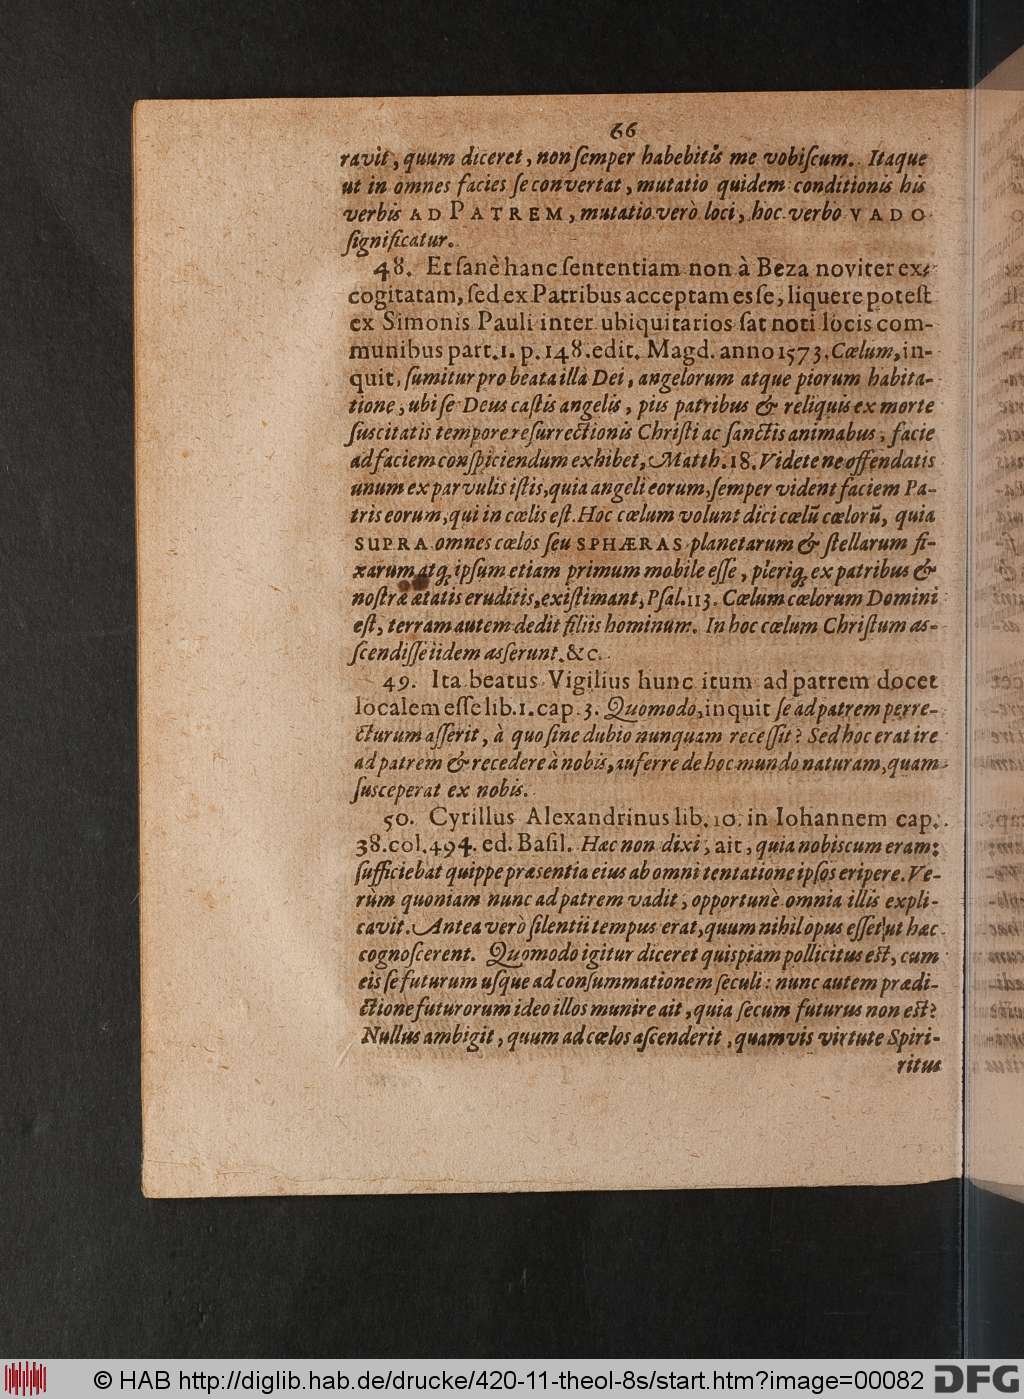 66
ravit, quum diceret, non ſemper habebitis me vobiſcum. Itaque
ut in omnes facies ſe convertat, mutatio quidem conditionis his
verbis AD PATREM, mutatio verò loci, hoc verbo VADO
ſignificatur.
48. Et ſanè hanc ſententiam non à Beza noviter ex-
cogitatam, ſed ex Patribus acceptam eſſe, liquere poteſt
ex Simonis Pauli inter ubiquitarios ſat noti locis com-
munibus part. 1. p. 148. edit. Magd. anno 1573. Cœlum, in-
quit, ſumitur pro beata illa Dei, angelorum atque piorum habita-
tione, ubi ſe Deus caſtis angelis, piis patribus & reliquis ex morte
ſuscitatis tempore reſurrectionis Chriſti ac ſanctis animabus, facie
ad faciem conſpiciendum exhibet, Matth. 18. Videte ne offendatis
unum ex parvulis iſtis, quia angeli eorum, ſemper vident faciem Pa-
tris eorum, qui in cœlis eſt. Hoc cœlum volunt dici cœlū cœlorū, quia
SUPRA omnes cœlos ſeu SPHÆRAS planetarum & ſtellarum fi-
xarum atq; ipſum etiam primum mobile eſſe, pleriq; ex patribus &
noſtræ ætatis eruditis, exiſtimant, Pſal. 113. Cœlum cœlorum Domini
eſt, terram autem dedit filiis hominum. In hoc cœlum Chriſtum as-
ſcendiſſe iidem asſerunt. &c.
49. Ita beatus Vigilius hunc itum ad patrem docet
localem eſſe lib. 1. cap. 3. Quomodo, inquit ſe ad patrem perre-
cturum aſſerit, à quo ſine dubio nunquam receſſit? Sed hoc erat ire
ad patrem & recedere à nobis, auferre de hoc mundo naturam, quam
ſusceperat ex nobis.
50. Cyrillus Alexandrinus lib. 10. in Iohannem cap.
38. col. 494. ed. Baſil. Hæc non dixi, ait, quia nobiscum eram:
ſufficiebat quippe præsentia eius ab omni tentatione ipſos eripere. Ve-
rùm quoniam nunc ad patrem vadit, opportunè omnia illis expli-
cavit. Antea verò ſilentii tempus erat, quum nihil opus eſſet ut hæc
cognoſcerent. Quomodo igitur diceret quispiam pollicitus eſt, cum
eis ſe futurum uſque ad conſummationem ſeculi: nunc autem prædi-
ctione futurorum ideo illos munire ait, quia ſecum futurus non eſt?
Nullus ambigit, quum ad cœlos aſcenderit, quamvis virtute Spiri-
ritus
© HAB http://diglib.hab.de/drucke/420-11-theol-8s/start.htm?image=00082
DFG